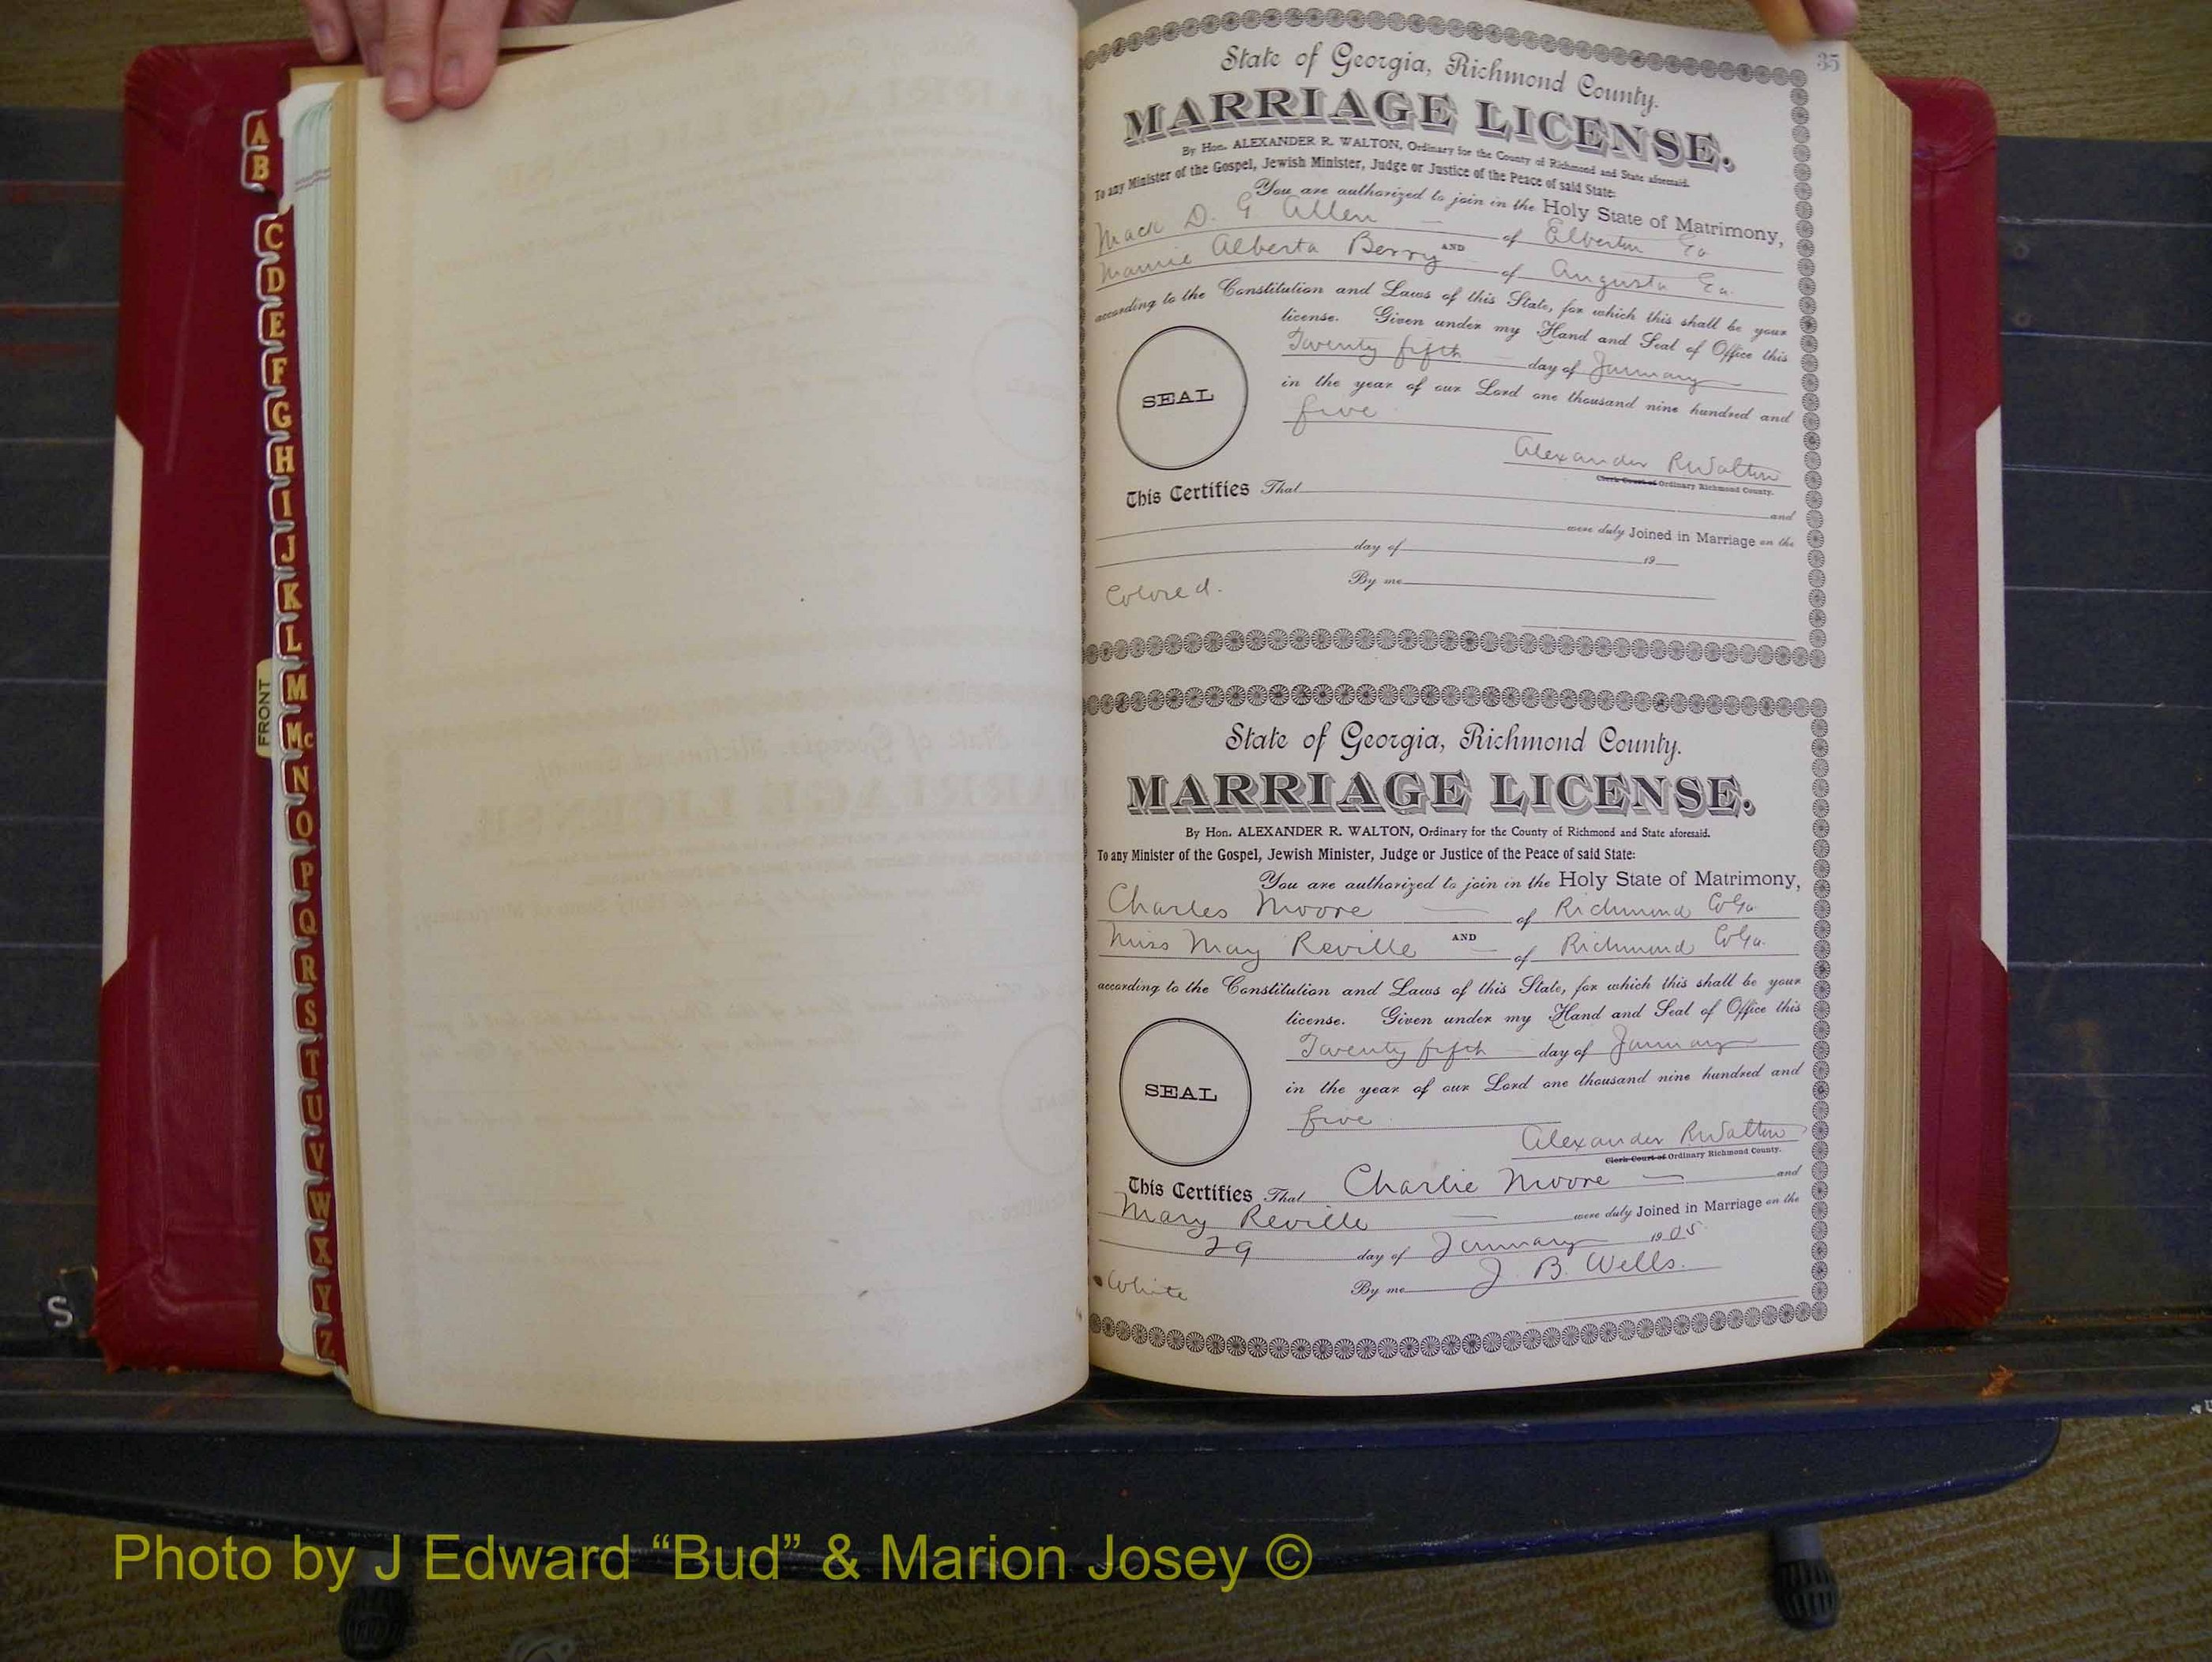 A
B
C
D
E
F
G
H
I
J
K
L
M
Mc
N
O
P
Q
R
S
T
U
V
W
X
Y
Z
FRONT
S
35
State of Georgia, Richmond County.
MARRIAGE LICENSE.
By Hon. ALEXANDER R. WALTON, Ordinary for the County of Richmond and State aforesaid.
To any Minister of the Gospel, Jewish Minister, Judge or Justice of the Peace of said State:
You are authorized to join in the Holy State of Matrimony,
Mack D. G Allen of Elberton Ga
AND
Mamie Alberta Berry of Augusta Ga.
according to the Constitution and Laws of this State, for which this shall be your
license. Given under my Hand and Seal of Office this
Twenty fifth day of January
in the year of our Lord one thousand nine hundred and
five
SEAL
Alexander R Walton
Clerk Court of Ordinary Richmond County.
This Certifies That and
were duly Joined in Marriage on the
day of 19
Colored. By me
State of Georgia, Richmond County.
MARRIAGE LICENSE.
By Hon. ALEXANDER R. WALTON, Ordinary for the County of Richmond and State aforesaid.
To any Minister of the Gospel, Jewish Minister, Judge or Justice of the Peace of said State:
You are authorized to join in the Holy State of Matrimony,
Charles Moore of Richmond Co Ga.
AND
Miss May Reville of Richmond Co Ga.
according to the Constitution and Laws of this State, for which this shall be your
license. Given under my Hand and Seal of Office this
Twenty fifth day of January
in the year of our Lord one thousand nine hundred and
five
SEAL
Alexander R Walton
Clerk Court of Ordinary Richmond County.
This Certifies That Charlie Moore and
Mary Reville were duly Joined in Marriage on the
29 day of January 1905
White By me J. B. Wells.
Photo by J Edward “Bud” & Marion Josey ©